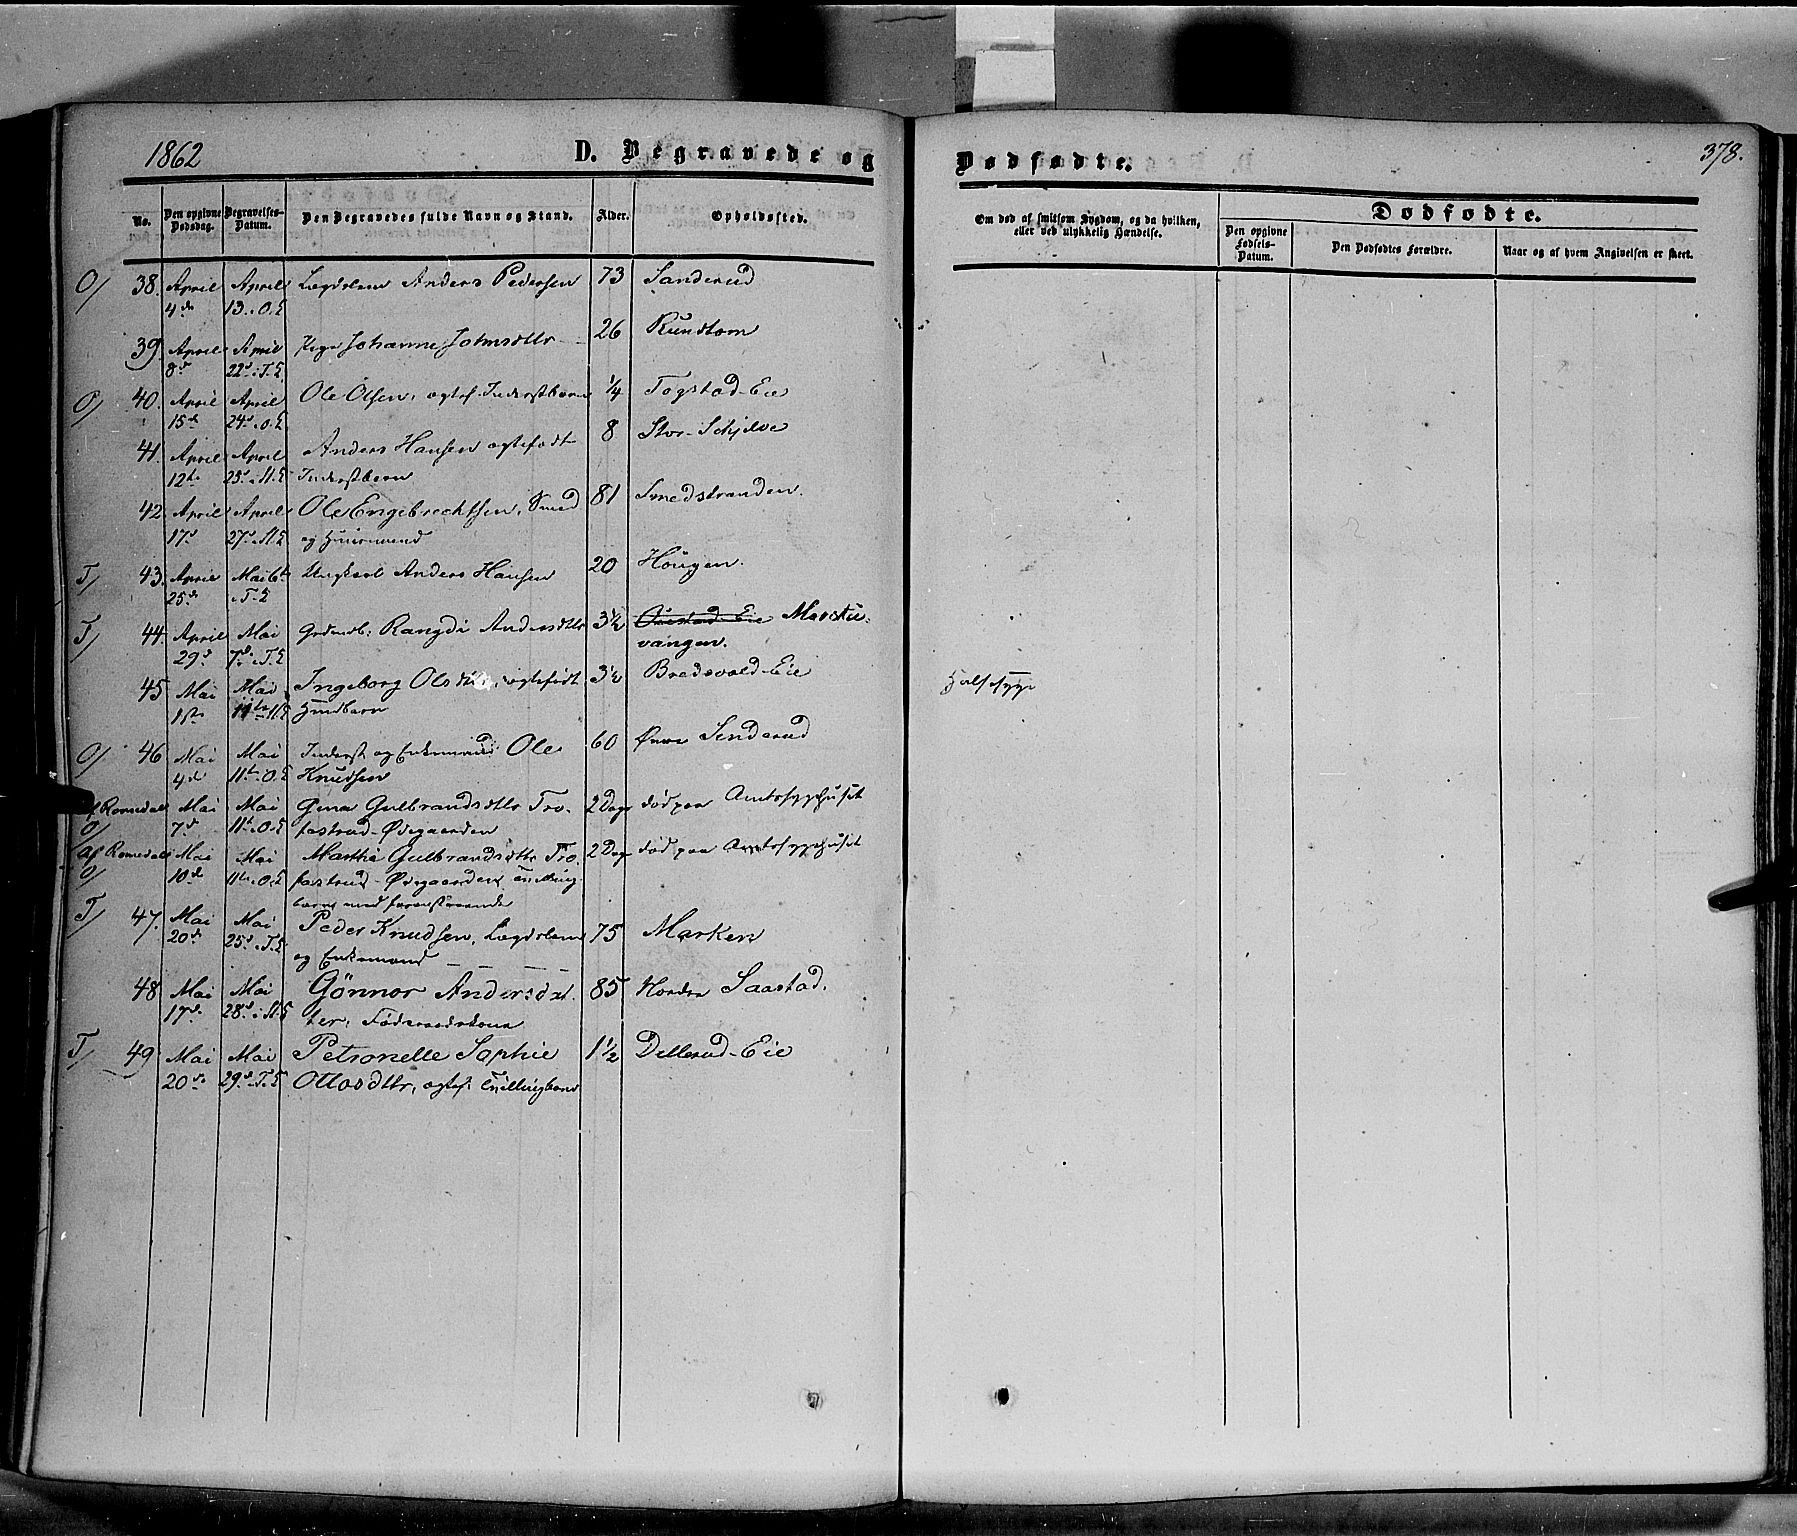 1862
D. Begravede og
Dødfødte.
378.
No.
Den opgivne Dødsdag.
Begravelses-Datum.
Den Begravedes fulde Navn og Stand.
Alder.
Opholdssted.
Om død af smitsom Sygdom, og da hvilken, eller ved ulykkelig Hændelse.
Dødfødte.
Den opgivne Fødsels-Datum.
Den Dødfødtes Forældre.
Naar og af hvem Angivelsen er skeet.
O/ 38. April April Lægdslem Anders Pedersen 73 Sanderud
4de 13. O.K
39. April April Pige Johanne Johnsdttr 26 Rundtom
8de 22de i T.K
O/ 40. April April Ole Olsen, ægtef. Inderstbarn 1/4 Togstad-Eie
15de 24de O.K
41. April April Anders Hansen ægtefødt 8 Stor-Schjelve
12te 25de i St.K Inderstbarn
42. April April Ole Engebrechtsen, Smed 81 Smedstranden.
17de 27de i St.K og Huusmand
T/ 43. April Mai 6te Ungkarl Anders Hansen 20 Hougen.
25de i T.K
T/ 44. April Mai Grdmdb: Rangdi Andersdttr 3½ Marstu-
29de 7de i T.K vangen.
45 Mai Mai Ingeborg Olsdttr, ægtefødt 3½ Bredsvold-Eie Halssyge
1ste 11te i St.K Husmbarn
O/ 46 Mai Mai Inderst og Enkemand Ole 60 Øvre Sanderud
4de 11te O.K Knudsen
Af Romedal Mai Mai Gina Gulbrandsdttr Tro- 2 Dage død paa Amtssygehuset
O/ 7de 11te O.K fastrud-Ødegaarden
Af Romedal Mai Mai Marthe Gulbrandsdttr Tro- 2 Dage død paa Amtssygehuset
O/ 10de 11te O.K fastrud-Ødegaarden, Tvilling-
barn med foranstaaende
T/ 47. Mai Mai Peder Knudsen, Lægdslem 75 Marken
20de 25de i T.K og Enkemand
48 Mai Mai Gønnor Andersdat- 85 Nordre Saastad.
17de 28de i St.K ter, Føderaadskone
T/ 49 Mai Mai Petronelle Sophie 1½ Dellerud-Eie
20de 29de T.K Ottosdttr, ægtef. Tvillingbarn